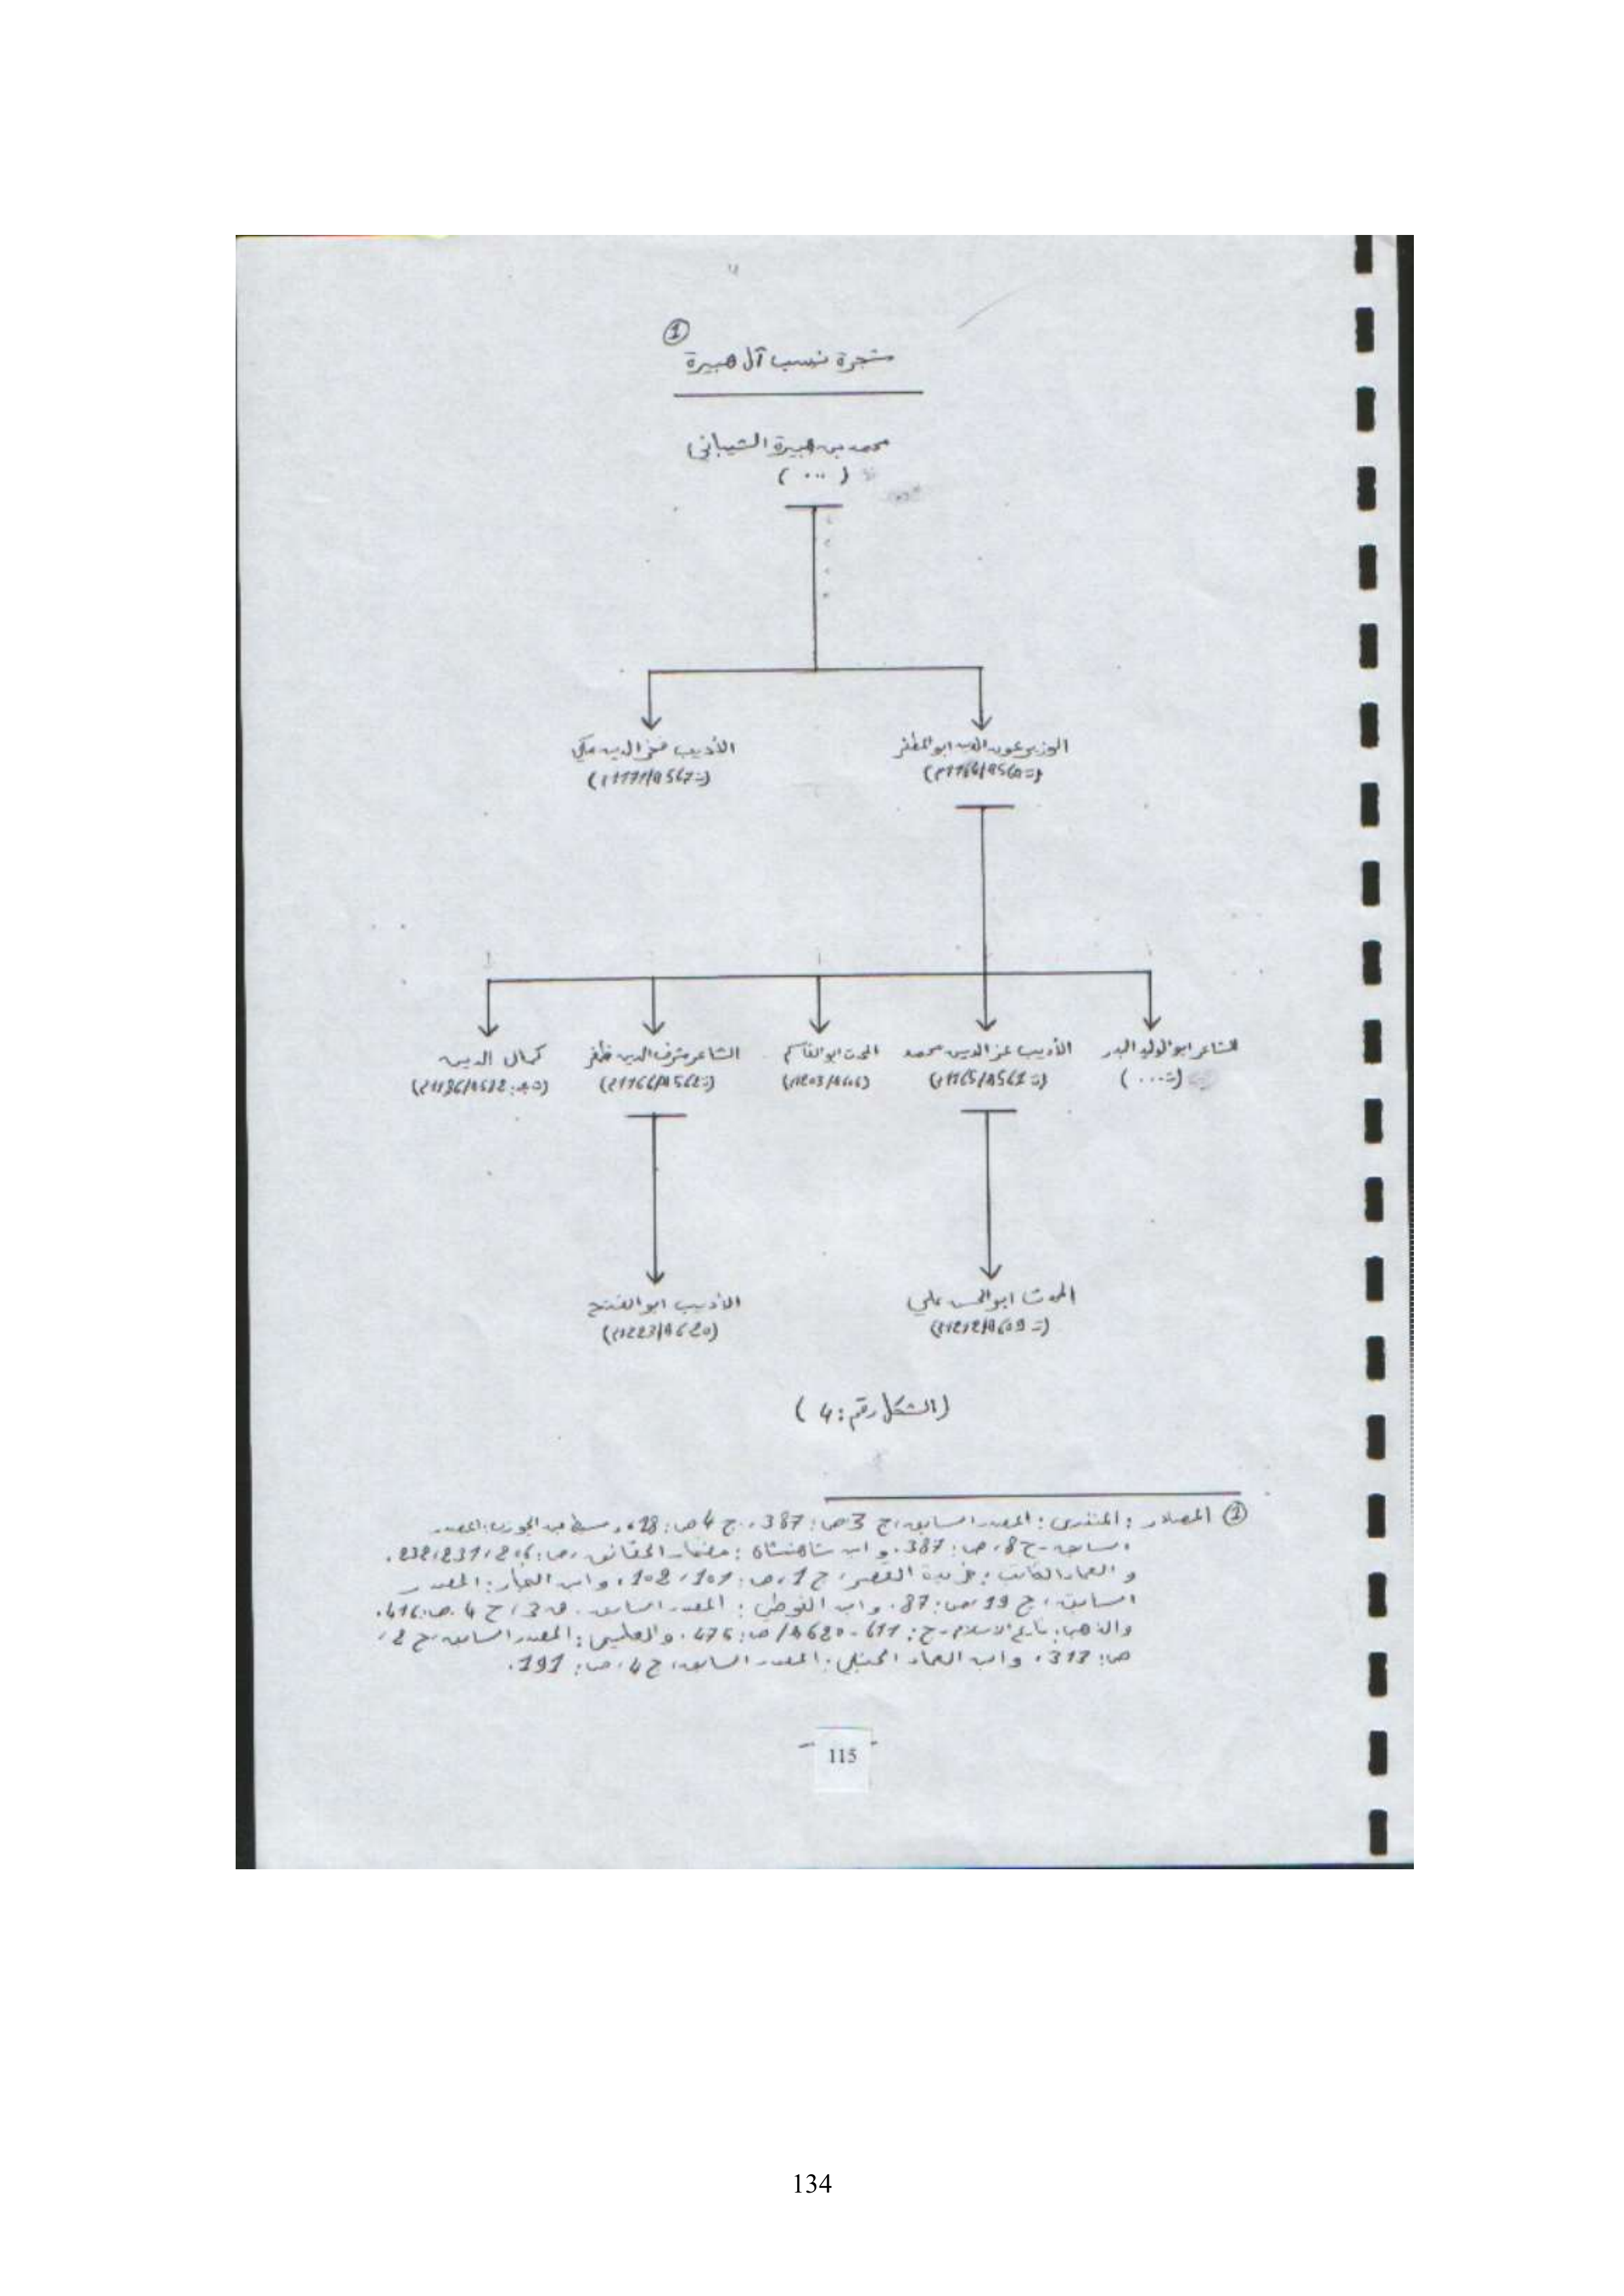 ①
شجرة نسب آل هبيرة
محمد بن هبيرة الشيباني
(...)
الوزير عون الدين ابو المظفر
(ت560ه/1166م)
الأديب فخر الدين مكي
(ت567ه/1171م)
الشاعر ابو الوليد البدر
(ت....)
الأديب عز الدين محمد
(ت561ه/1165م)
المحدث ابو القاسم
الشاعر شرف الدين ظفر
(ت562ه/1166م)
كمال الدين
المحدث ابو الحسن علي
(ت609ه/1212م)
الأديب ابو الفتح
(620ه/1223م)
(الشكل رقم: 4)
① المصادر: المنذري: المصدر السابق، ج 3 ص: 387. ج 4 ص: 18. و سبط ابن الجوزي: المصدر
السابق ج 8، ص: 387. و ابن شاهنشاه: مضمار الحقائق، ص: 206، 231، 232.
و العماد الكاتب: خريدة القصر، ج 1، ص: 101، 102. و ابن النجار: المصدر
السابق، ج 19 ص: 87. و ابن الفوطي: المصدر السابق، ق 3، ج 4 ص: 416.
والذهبي: تاريخ الاسلام ج: 611-620ه/ ص: 475. و العليمي: المصدر السابق ج 2،
ص: 317. و ابن العماد الحنبلي: المصدر السابق، ج 4، ص: 191.
115
134